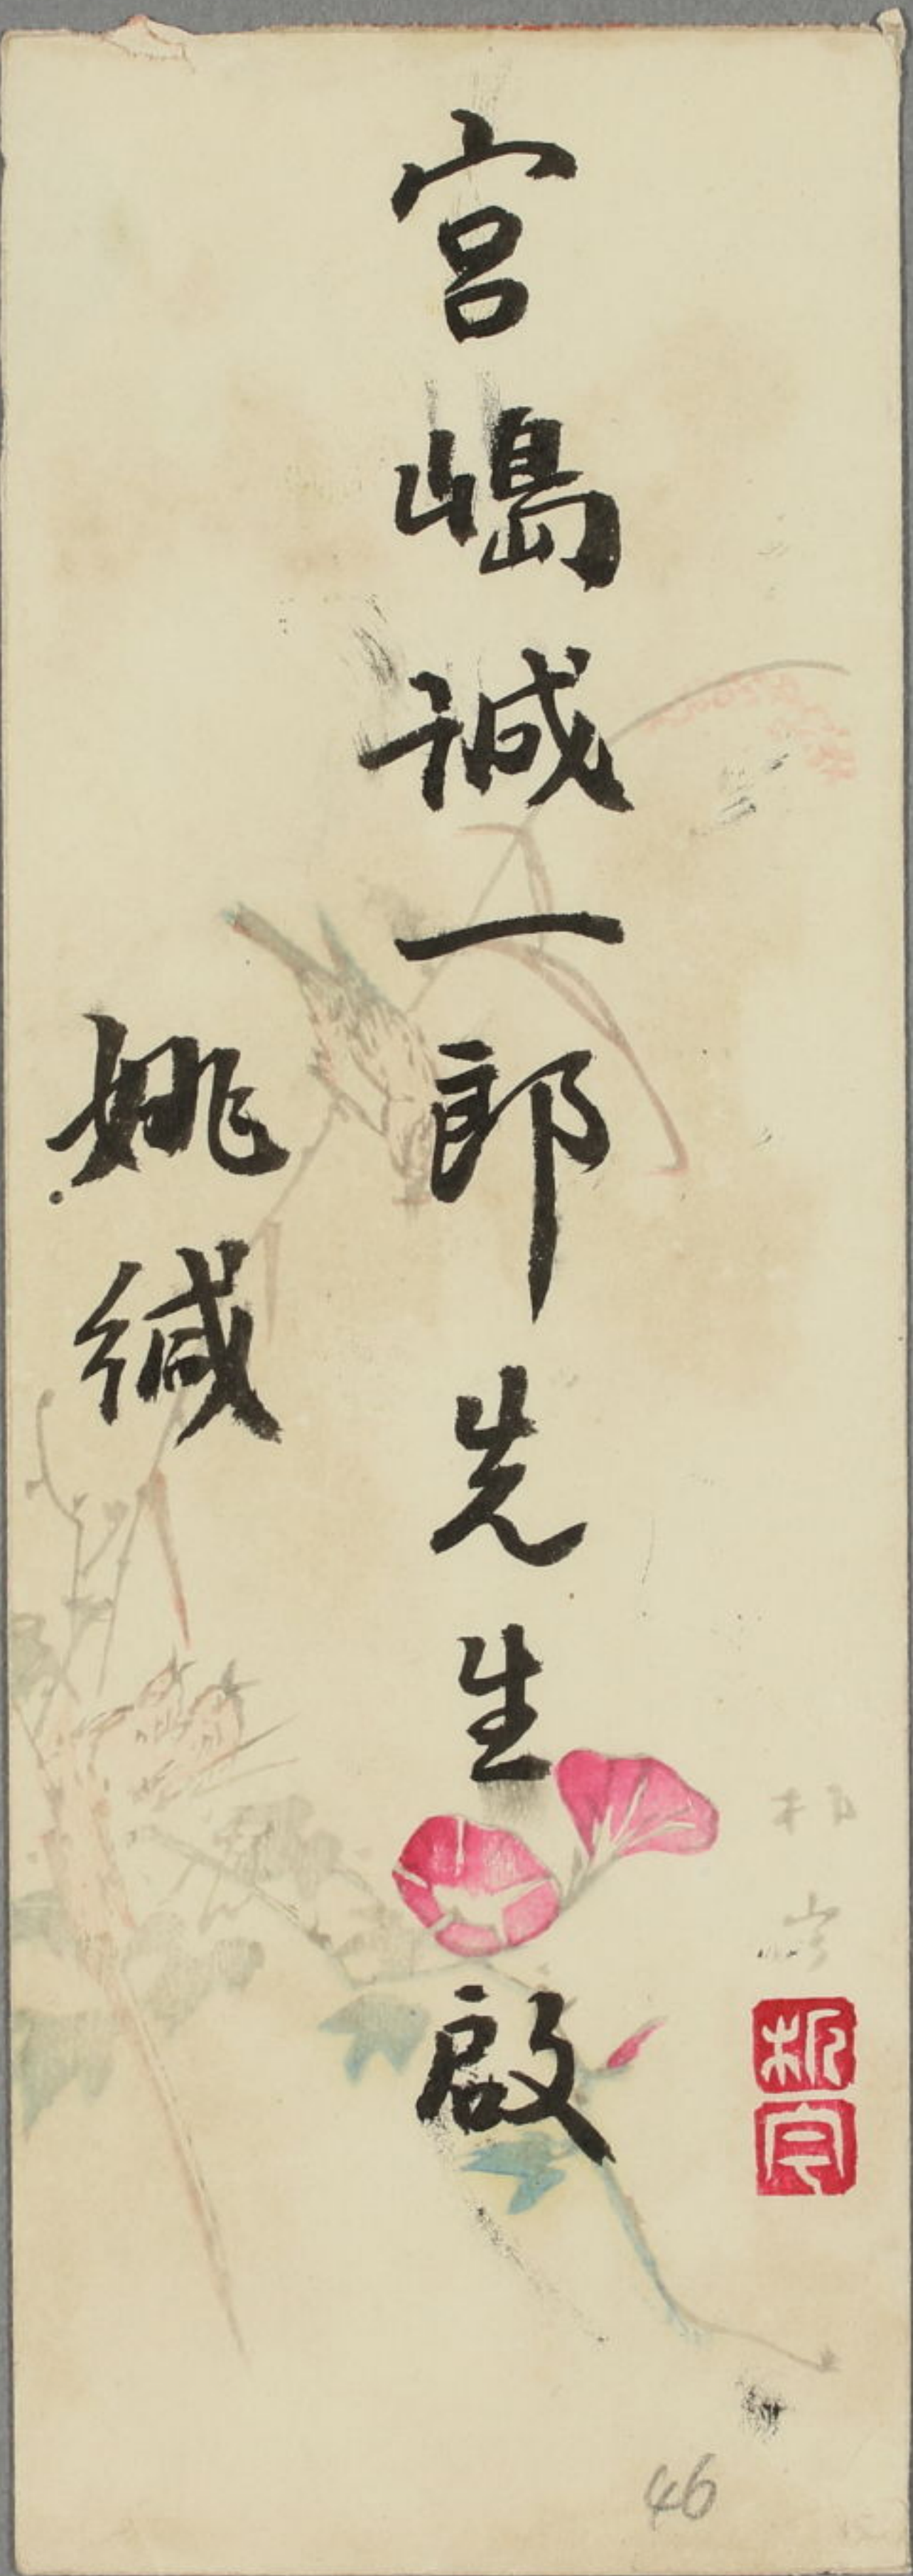 宮嶋誠一郎先生啟
姚緘
46